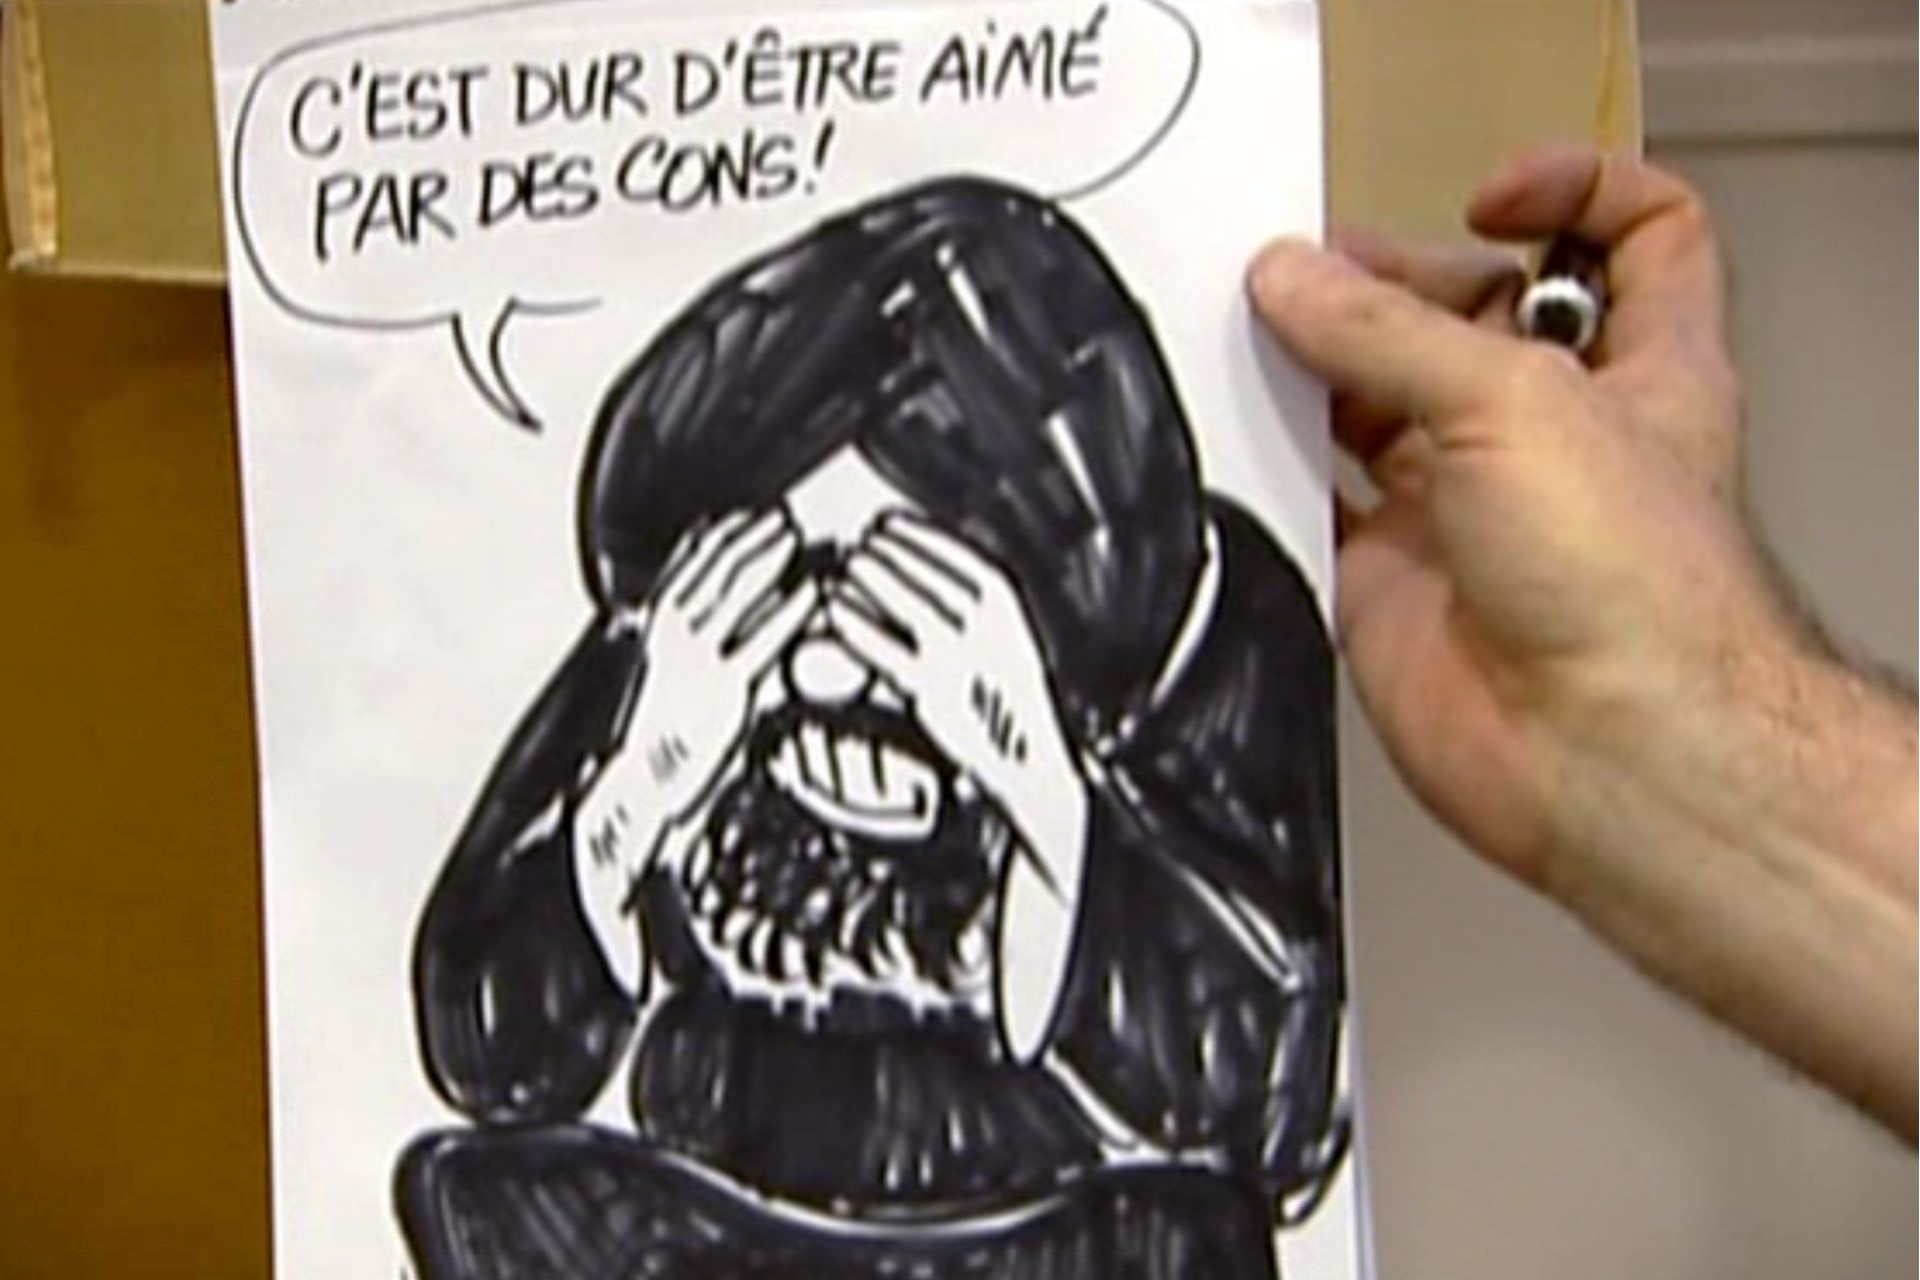 C'EST DUR D'ÊTRE AIMÉ
PAR DES CONS!